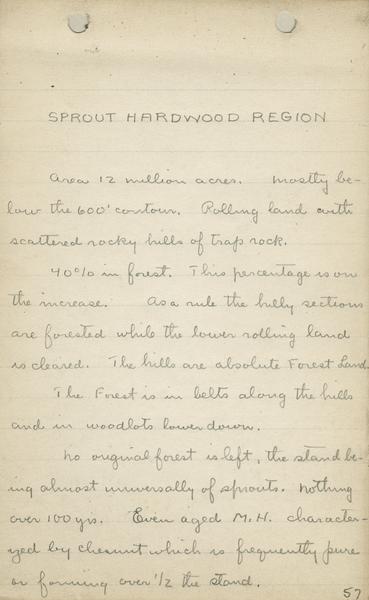 SPROUT HARDWOOD REGION
Area 12 million acres. Mostly be-
low the 600' contour. Rolling land with
scattered rocky hills of trap rock.
40% in forest. This percentage is on
the increase. As a rule the hilly sections
are forested while the lower rolling land
is cleared. The hills are absolute Forest Land.
The Forest is in belts along the hills
and in woodlots lower down.
No original forest is left, the stand be-
ing almost universally of sprouts. Nothing
over 100 yrs. Even aged M.H. character-
yed by chesnut which is frequently pure
or forming over 1/2 the stand.
57